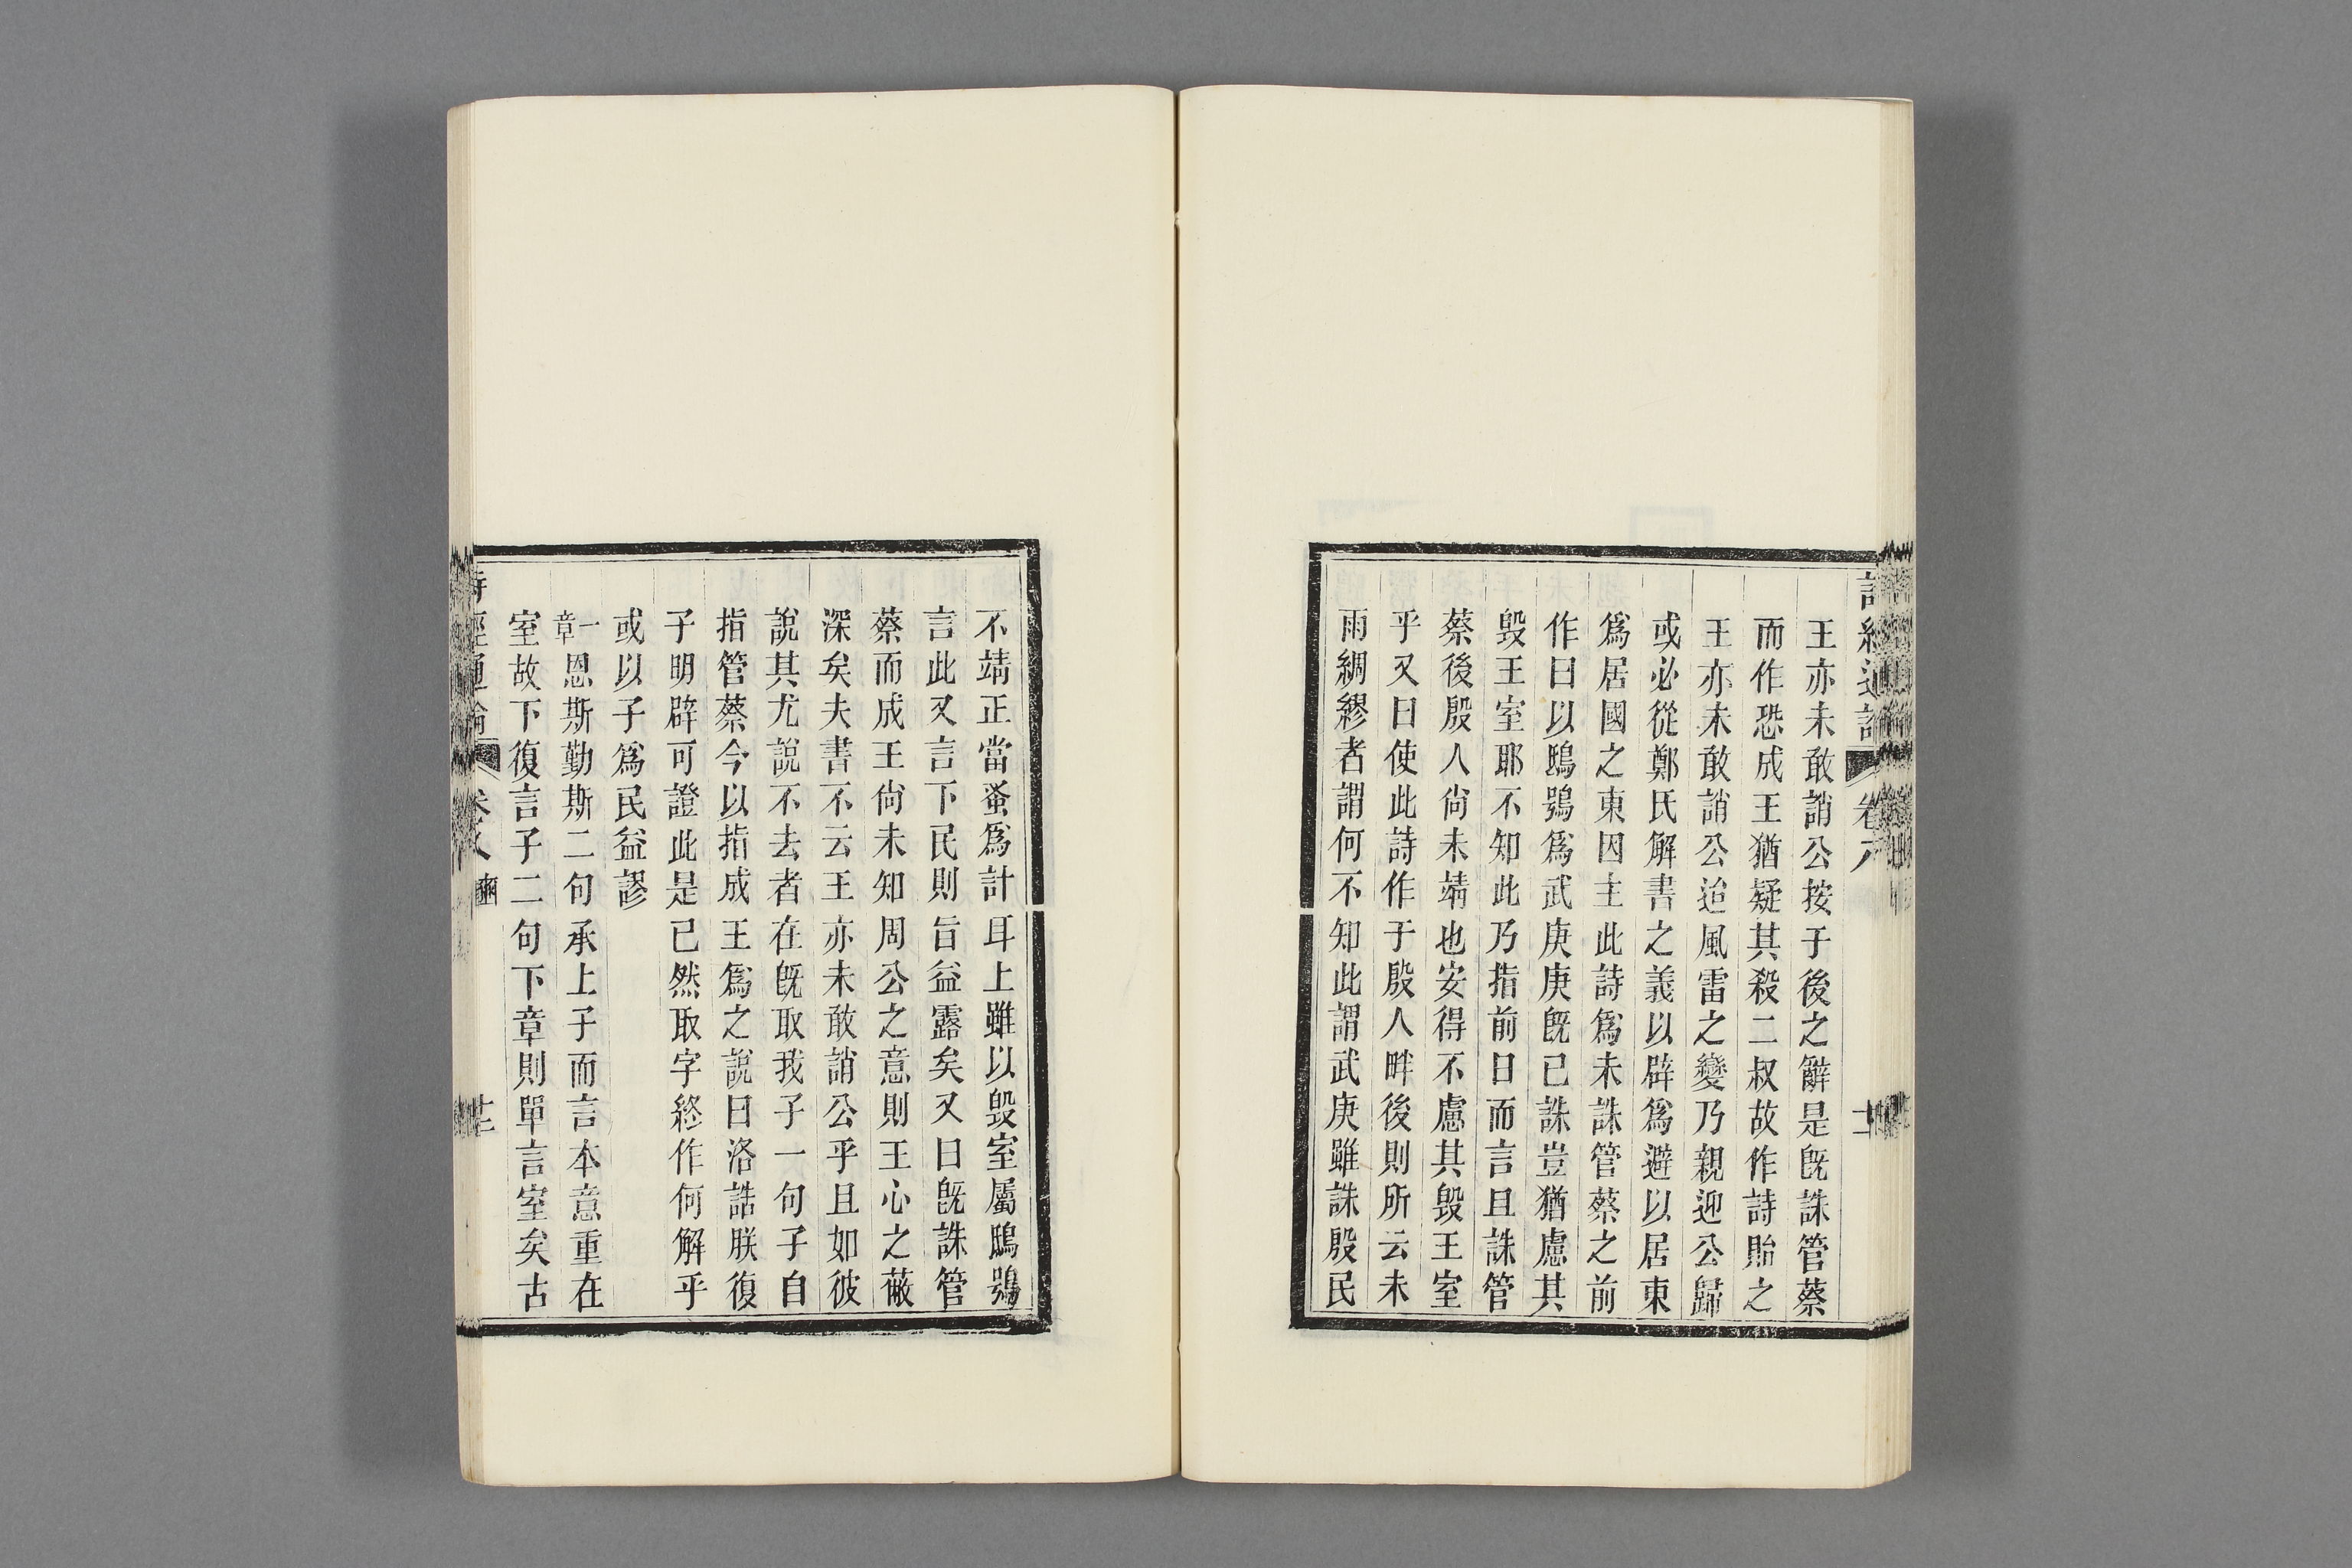 王亦未敢誚公按于後之辭是旣誅管蔡
而作恐成王猶疑其殺二叔故作詩貽之
王亦未敢誚公迨風雷之變乃親迎公歸
或必從鄭氏解書之義以辟爲避以居東
爲居國之東因主此詩爲未誅管蔡之前
作曰以鴟鴞爲武庚庚旣已誅豈猶慮其
毀王室耶不知此乃指前日而言且誅管
蔡後殷人尙未靖也安得不慮其毀王室
乎又曰使此詩作于殷人畔後則所云未
雨綢繆者謂何不知此謂武庚雖誅殷民
不靖正當蚤爲計耳上雖以毀室屬鴟鴞
言此又言下民則旨益露矣又曰旣誅管
蔡而成王尙未知周公之意則王心之蔽
深矣夫書不云王亦未敢誚公乎且如彼
說其尤說不去者在旣取我子一句子自
指管蔡今以指成王爲之說曰洛誥朕復
子明辟可證此是已然取字終作何解乎
或以子爲民益謬
一章恩斯勤斯二句承上子而言本意重在
室故下復言子二句下章則單言室矣古
豳